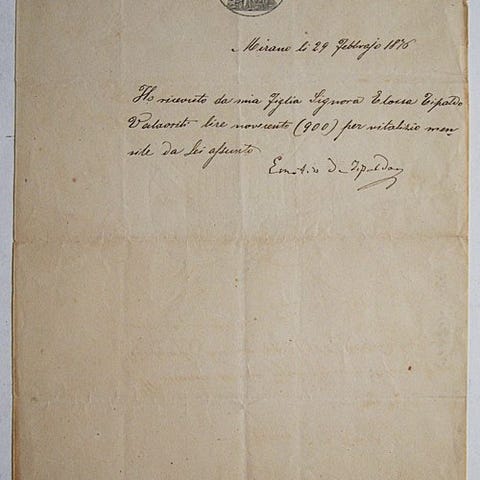 Mirano li 29 Febbrajo 1876
Ho ricevuto da mia Figlia Signora Eloisa Tipaldo
Valaoriti lire novecento (900) per vitalizio men-
sile da Lei assunto
Emilio De Tipaldo